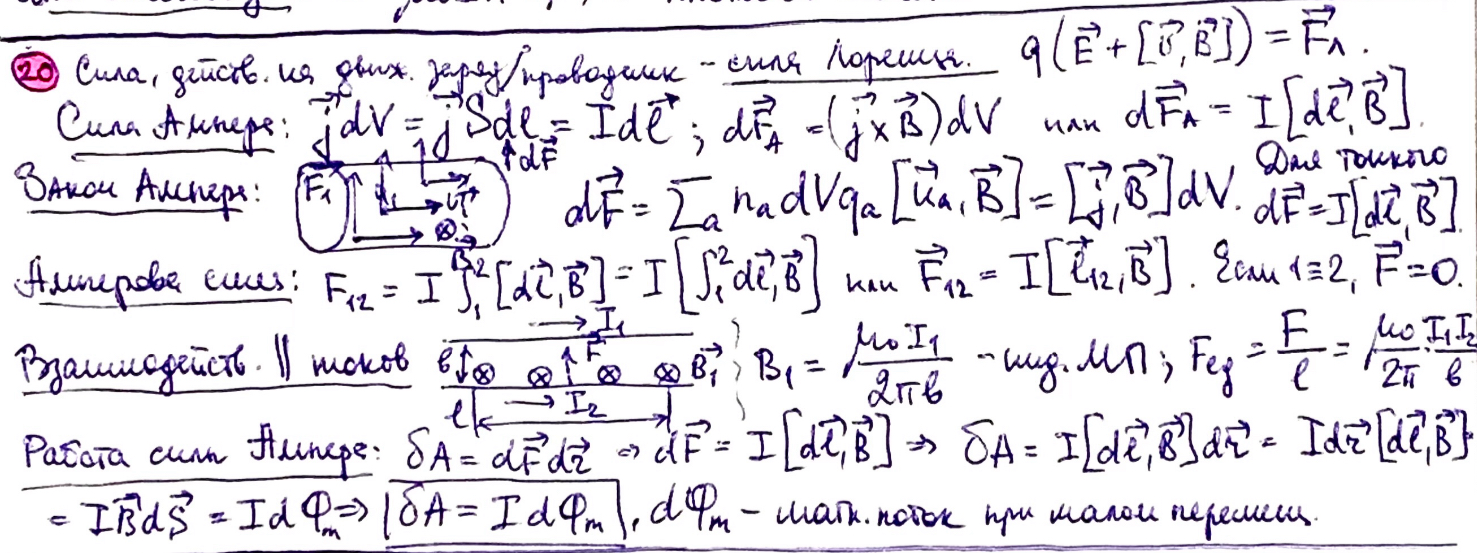 20 Сила, действ. на движ. заряд/проводник – сила Лоренца. q(E⃗ + [v⃗, B⃗]) = F⃗л.
Сила Ампера: j⃗dV = j⃗Sdl = Idl⃗; dF⃗A = (j⃗ × B⃗)dV или dF⃗A = I[dl⃗, B⃗].
Закон Ампера: F⃗1 dF⃗ v⃗ ⊗ B⃗ dF⃗ = Σa na dV qa [u⃗a, B⃗] = [j⃗, B⃗]dV. Для тонкого dF⃗ = I[dl⃗, B⃗].
Амперова сила: F12 = I∫₁²[dl⃗, B⃗] = I[∫₁²dl⃗, B⃗] или F⃗12 = I[l⃗12, B⃗]. Если 1≡2, F⃗ = 0.
Взаимодейств. || токов I1 F⃗ b ⊗ ⊗ ⊗ ⊗ B⃗1 l I2 B1 = μ0I1/2πb – инд. МП; Fед = F/l = μ0/2π · I1I2/b
Работа силы Ампера: δA = dF⃗dr⃗ ⇒ dF⃗ = I[dl⃗, B⃗] ⇒ δA = I[dl⃗, B⃗]dr⃗ = Idr⃗[dl⃗, B⃗] =
= IB⃗dS⃗ = IdΦm ⇒ δA = IdΦm, dΦm – магн. поток при малом перемещ.